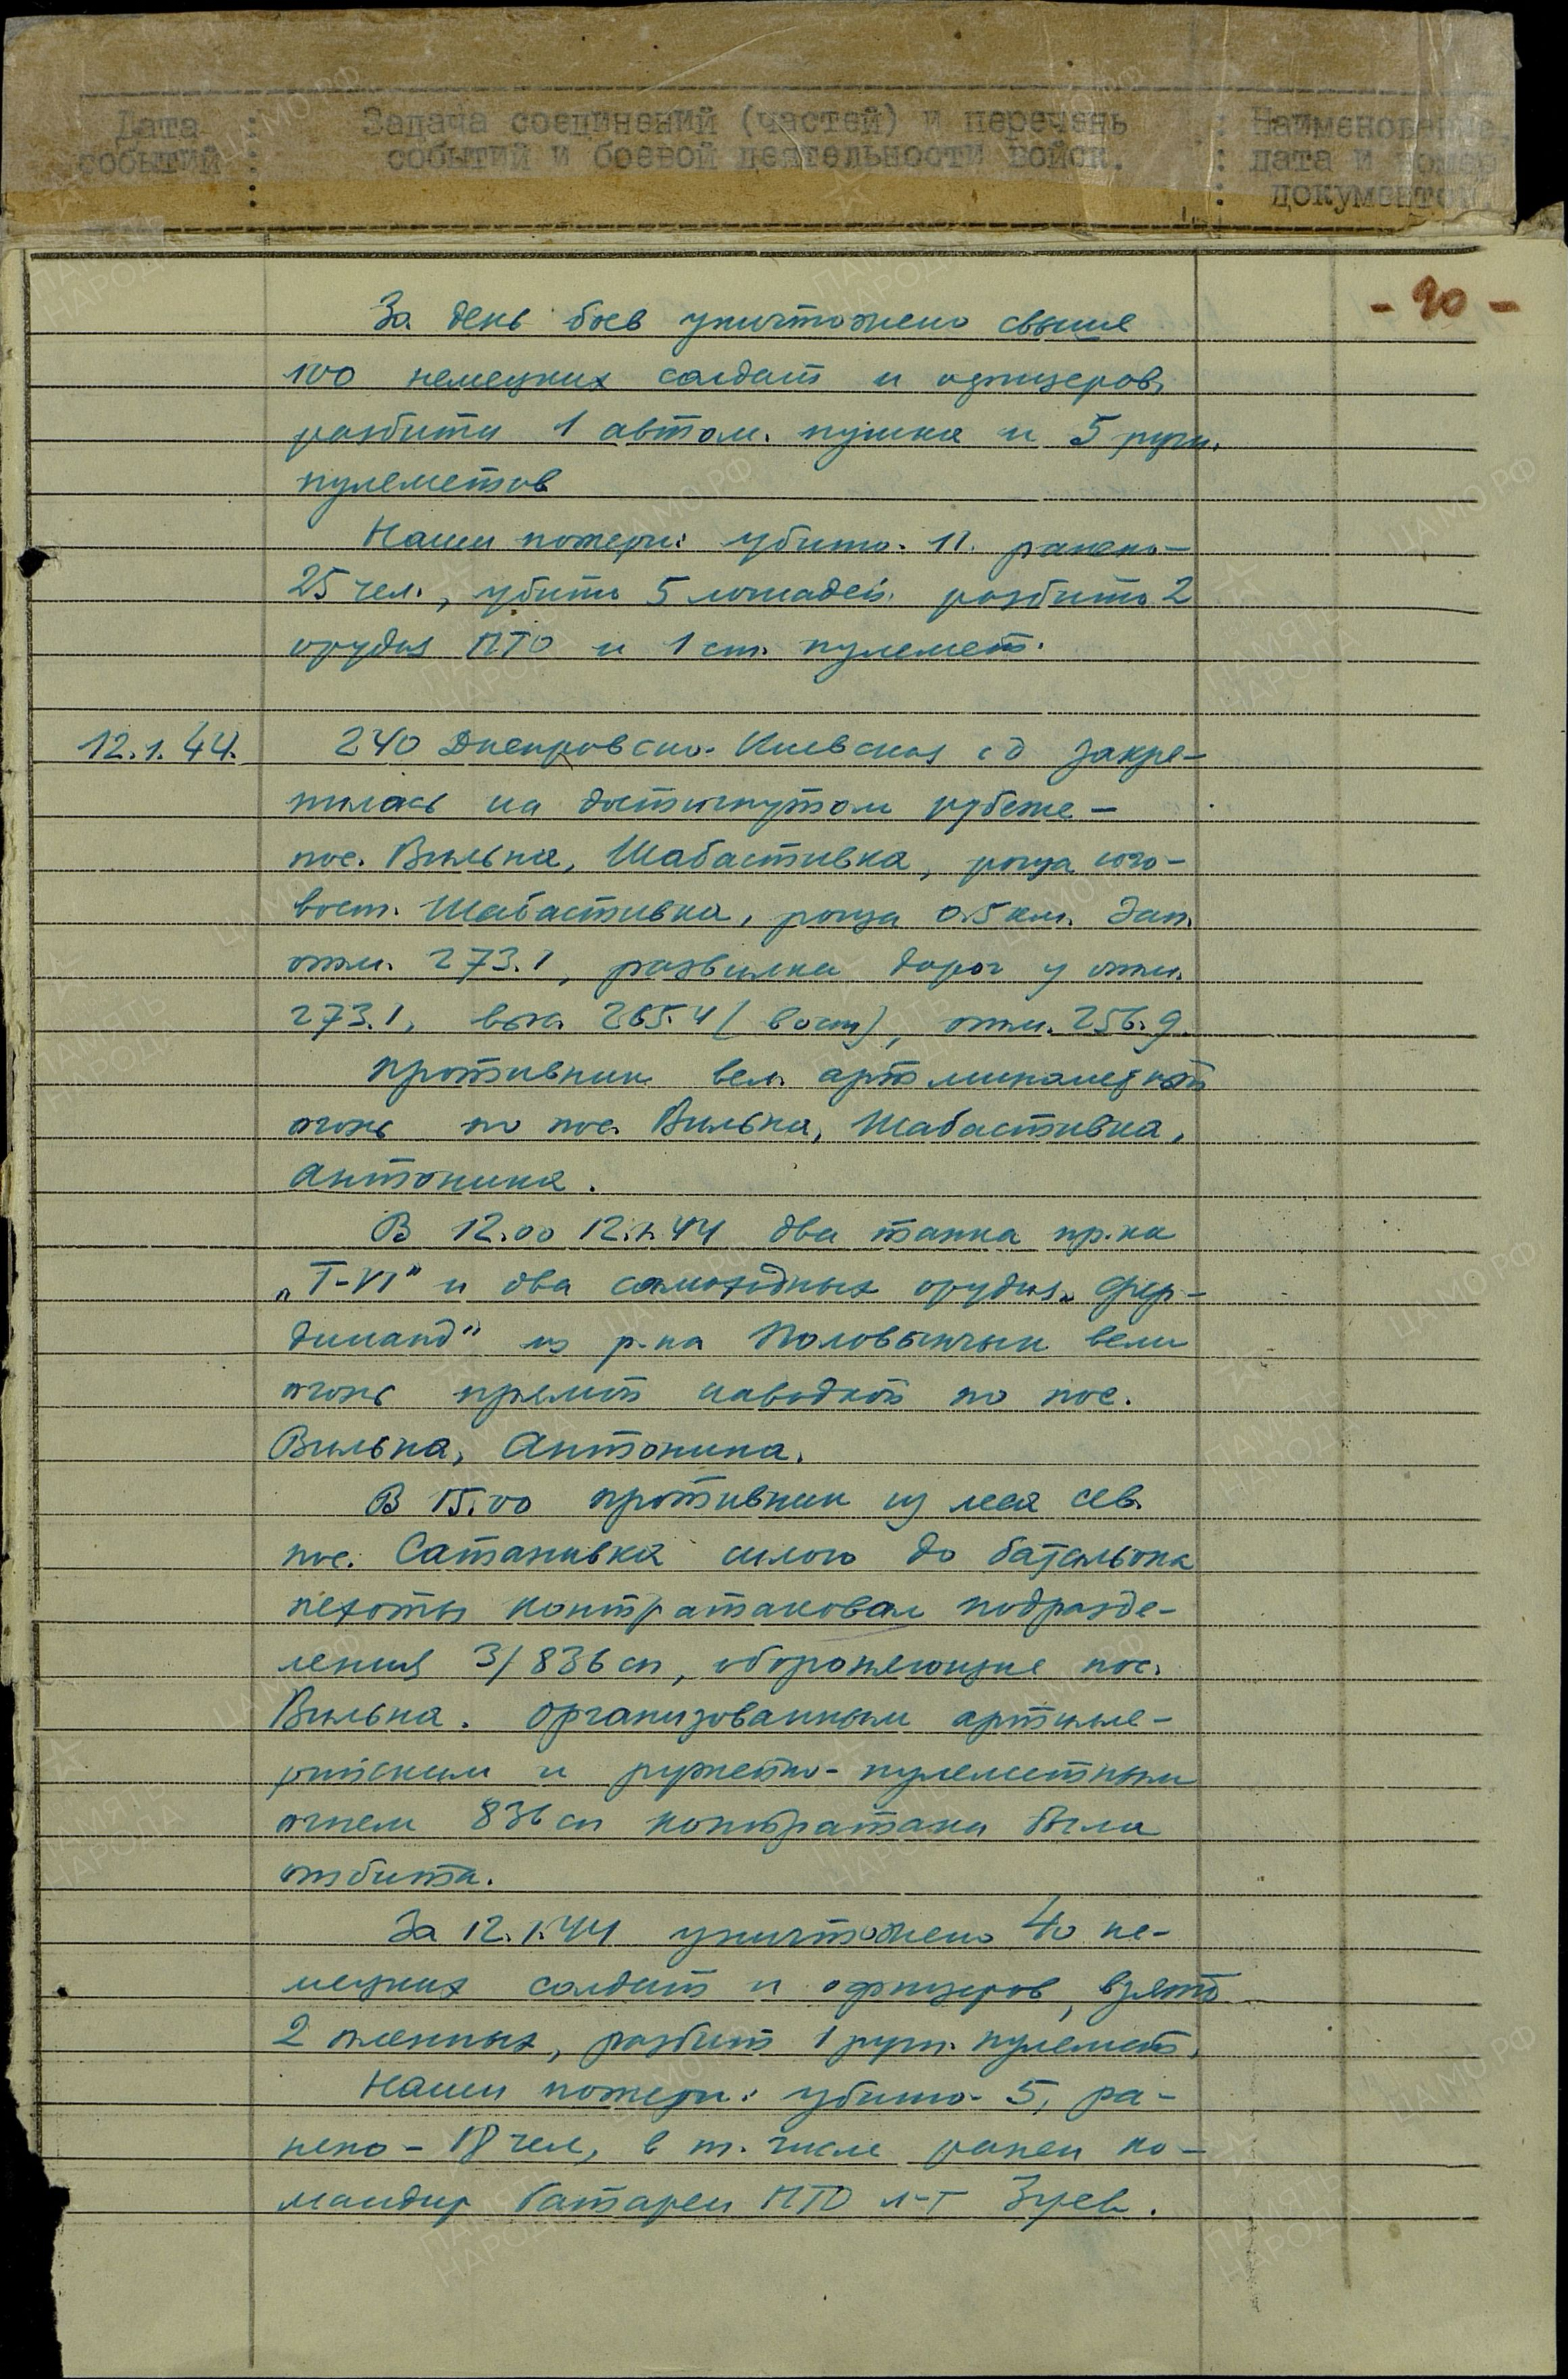 Дата : Задача соединений (частей) и перечень : Наименование,
событий : событий и боевой деятельности войск. : дата и номер
: документов
- 90 -
За день боев уничтожено свыше
100 немецких солдат и офицеров,
разбиты 1 автом. пушка и 5 ручн.
пулеметов
Наши потери: убито - 11, ранено -
25 чел., убито 5 лошадей, разбито 2
орудия ПТО и 1 ст. пулемет.
12.1.44. 240 Днепровско-Киевская сд закре-
пилась на достигнутом рубеже -
пос. Вильна, Шабастивка, роща юго-
вост. Шабастивка, роща 0.5 км. зап.
отм. 273.1, развилка дорог у отм.
273.1, выс. 265.4 (вост), отм. 256.9.
Противник вел артминометный
огонь по пос. Вильна, Шабастивка,
Антонина.
В 12.00 12.1.44 два танка пр-ка
„Т-VI" и два самоходных орудия „Фер-
динанд" из р-на Половынчык вели
огонь прямой наводкой по пос.
Вильна, Антонина.
В 15.00 противник из леса сев.
пос. Сатанивка силою до батальона
пехоты контратаковал подразде-
ления 3/836 сп, обороняющие пос.
Вильна. Организованным артилле-
рийским и ружейно-пулеметным
огнем 836 сп контратака была
отбита.
За 12.1.44 уничтожено 40 не-
мецких солдат и офицеров, взято
2 пленных, разбит 1 ручн. пулемет.
Наши потери: убито - 5, ра-
нено - 18 чел, в т. числе ранен ко-
мандир батареи ПТО л-т Зуев.